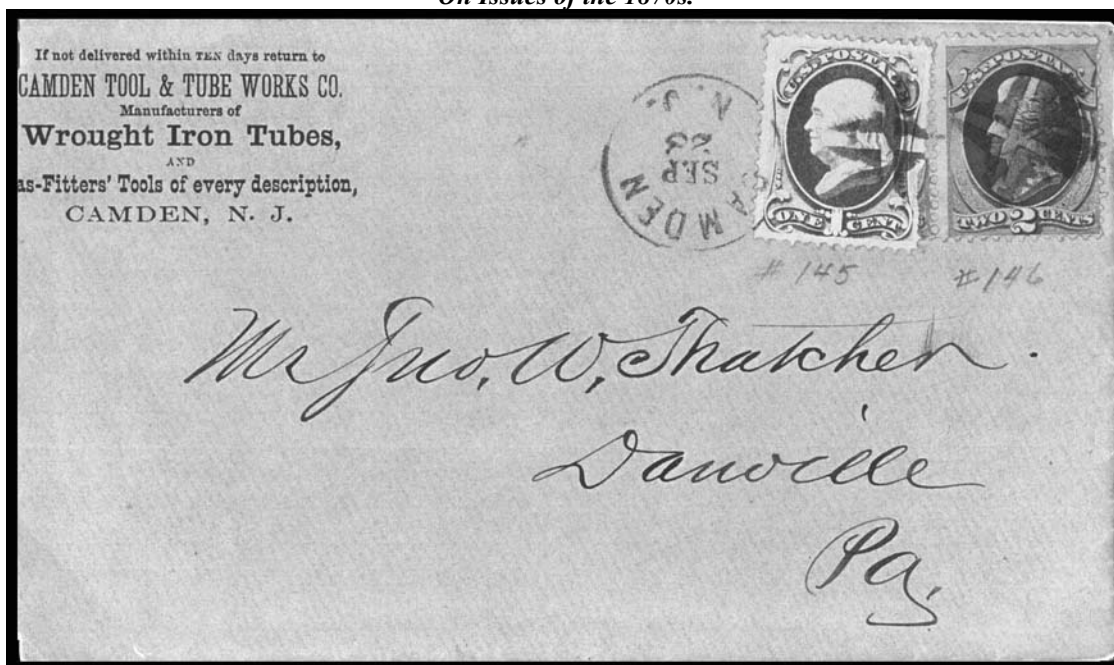 On Issues of the 1870s.
If not delivered within TEN days return to
CAMDEN TOOL & TUBE WORKS CO.
Manufacturers of
Wrought Iron Tubes,
AND
as-Fitters' Tools of every description,
CAMDEN, N. J.
CAMDEN N. J.
SEP
23
U.S. POSTAGE
ONE 1 CENT
U.S. POSTAGE
TWO 2 CENTS
# 145 # 146
Mr Jno. W. Thatcher.
Danville
Pa.